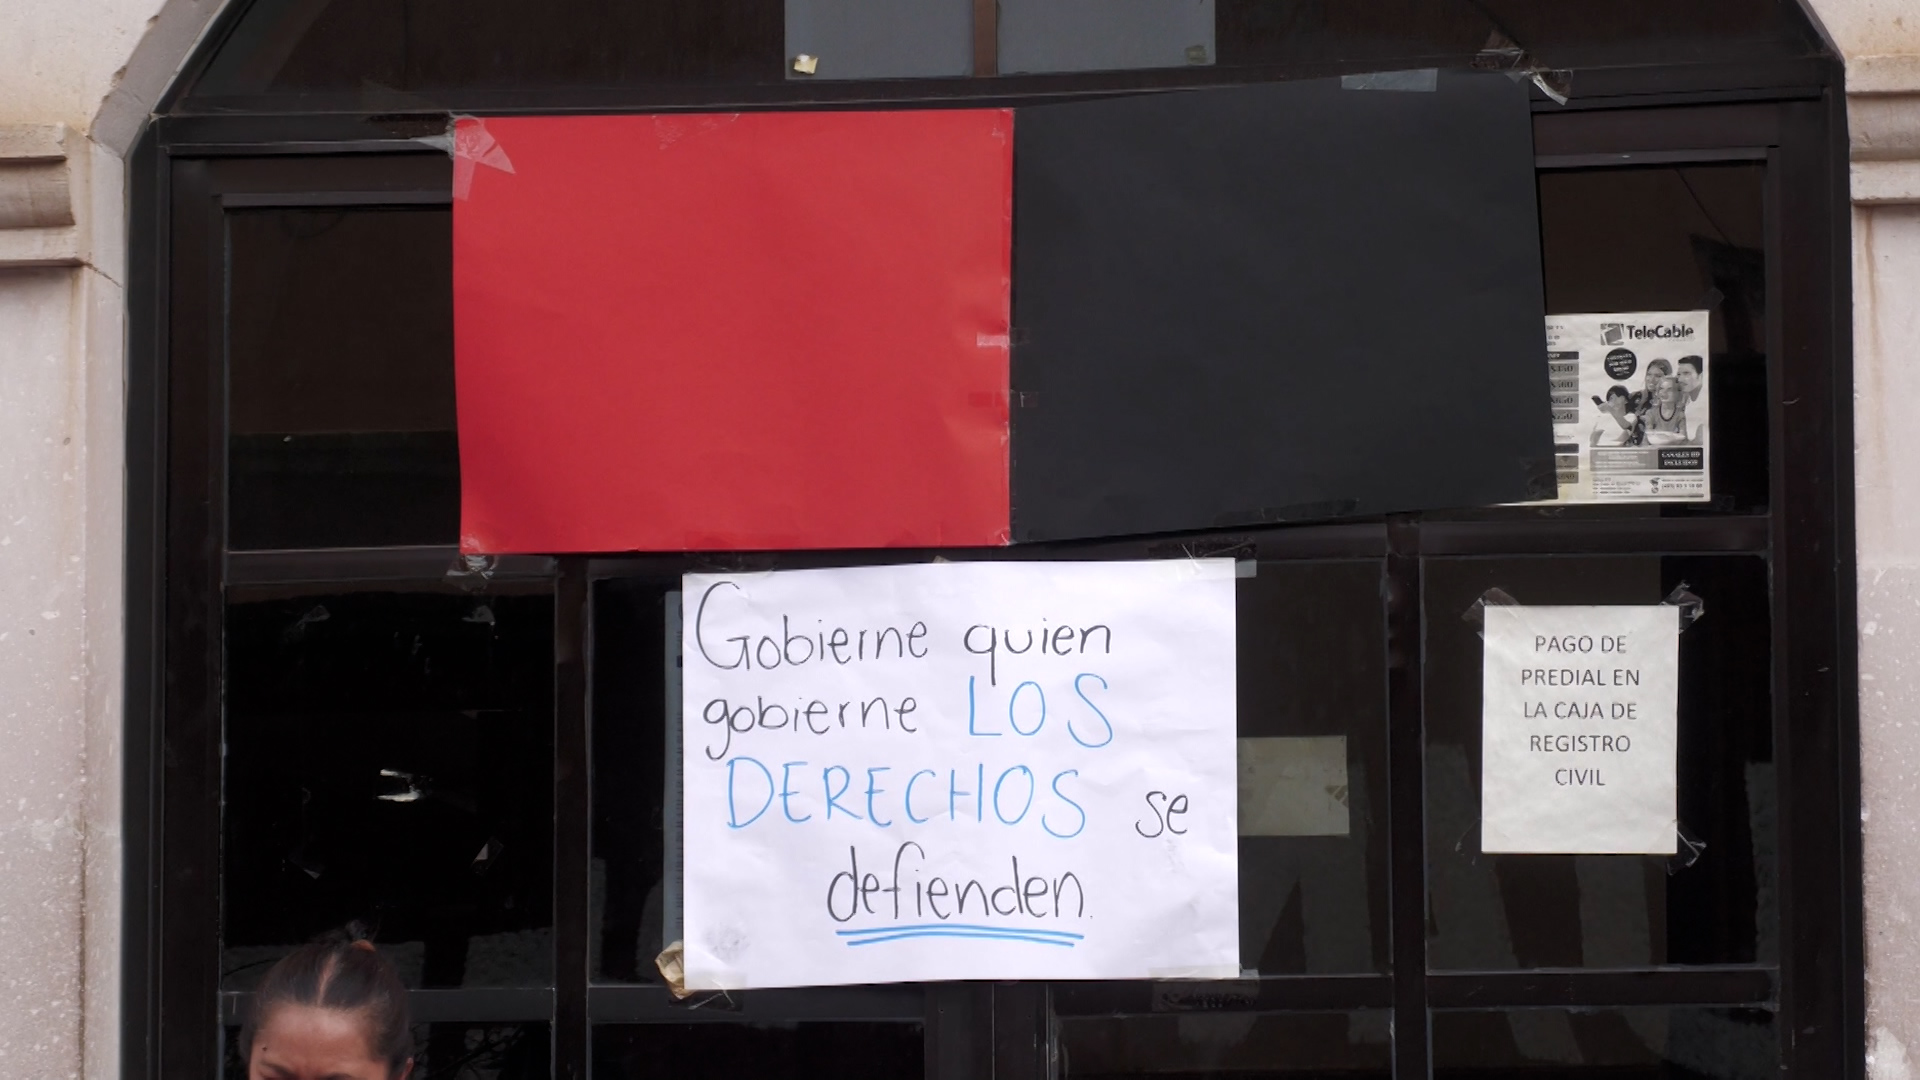 TeleCable
CANALES HD
INCLUIDOS
Gobierne quien
gobierne LOS
DERECHOS se
defienden.
PAGO DE
PREDIAL EN
LA CAJA DE
REGISTRO
CIVIL